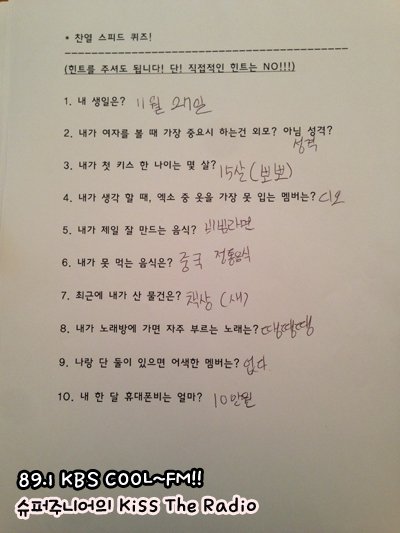 * 찬열 스피드 퀴즈!
(힌트를 주셔도 됩니다! 단! 직접적인 힌트는 NO!!!)
1. 내 생일은? 11월 27일
2. 내가 여자를 볼 때 가장 중요시 하는건 외모? 아님 성격?
성격
3. 내가 첫 키스 한 나이는 몇 살? 15살(뽀뽀)
4. 내가 생각 할 때, 엑소 중 옷을 가장 못 입는 멤버는? 디오
5. 내가 제일 잘 만드는 음식? 비빔라면
6. 내가 못 먹는 음식은? 중국 전통음식
7. 최근에 내가 산 물건은? 책상 (새)
8. 내가 노래방에 가면 자주 부르는 노래는? 땡땡땡
9. 나랑 단 둘이 있으면 어색한 멤버는? 없다
10. 내 한 달 휴대폰비는 얼마? 10만원
89.1 KBS COOL~FM!!
슈퍼주니어의 Kiss The Radio